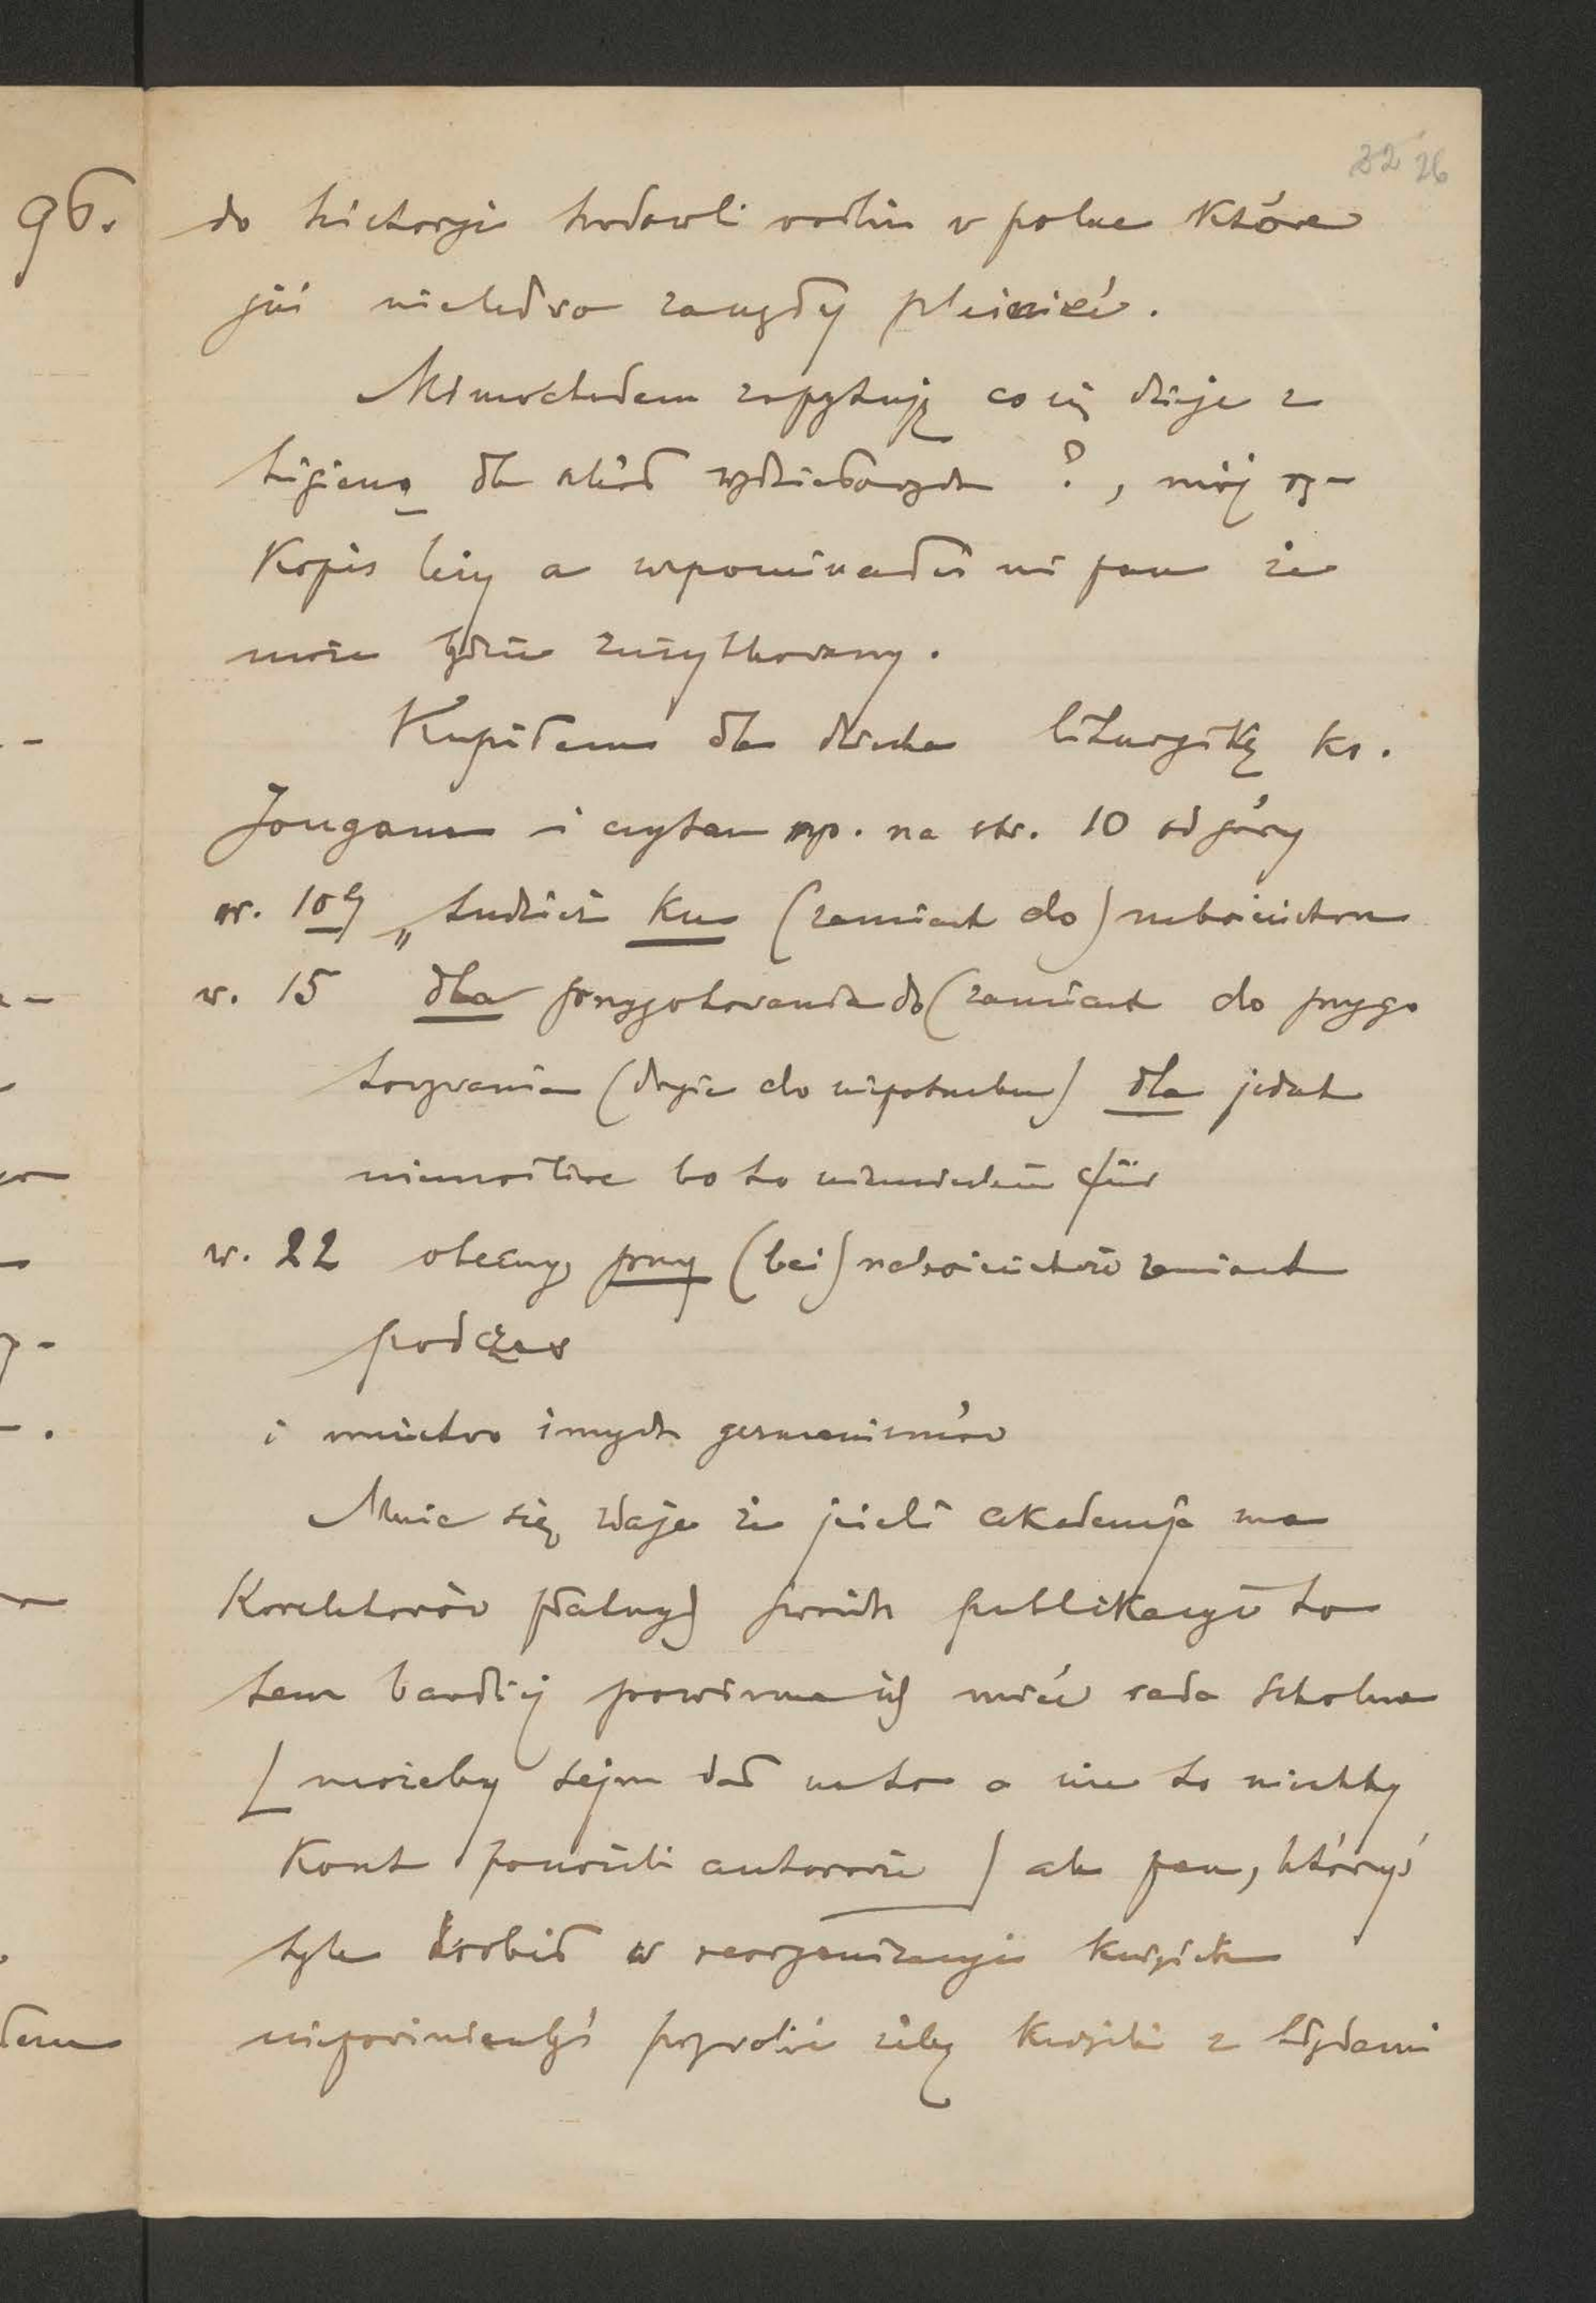 32 26
96.
do historyi hodowli roślin w polsce które
już niełatwo zawyżdy pleinić.
Mimochodem zapytuję co się dzieje z
higieną dla szkół wydziałowych ?, mój rę-
kopis leży a wspominałeś mi pan że
może będzie zużytkowany.
Kupiłem dla dziecka liturgikę ks.
Jougana i czytam np. na str. 10 od góry
w. 10ty „tudzież ku (zamiast do) nabożeństwu
w. 15 dla przygotowania do (zamiast do przygo
towywania (drugie do niepotrzebne) dla jednak
niemożliwe bo to niemieckie für
w. 22 obecny przy (bei) nabożeństwie zamiast
podczas
i mnóstwo innych germanizmów
Mnie się zdaje że jeżeli akademja ma
korektorów płatnych swoich publikacyi to
tem bardziej powinna ich mieć rada szkolna
[możeby sejm dał na to a nie to niechby
koszt ponosili autorowie] ale pan, któryś
tyle zrobił w reorganizacyi książek
niepowinienbyś pozwolić żeby książki z błędami